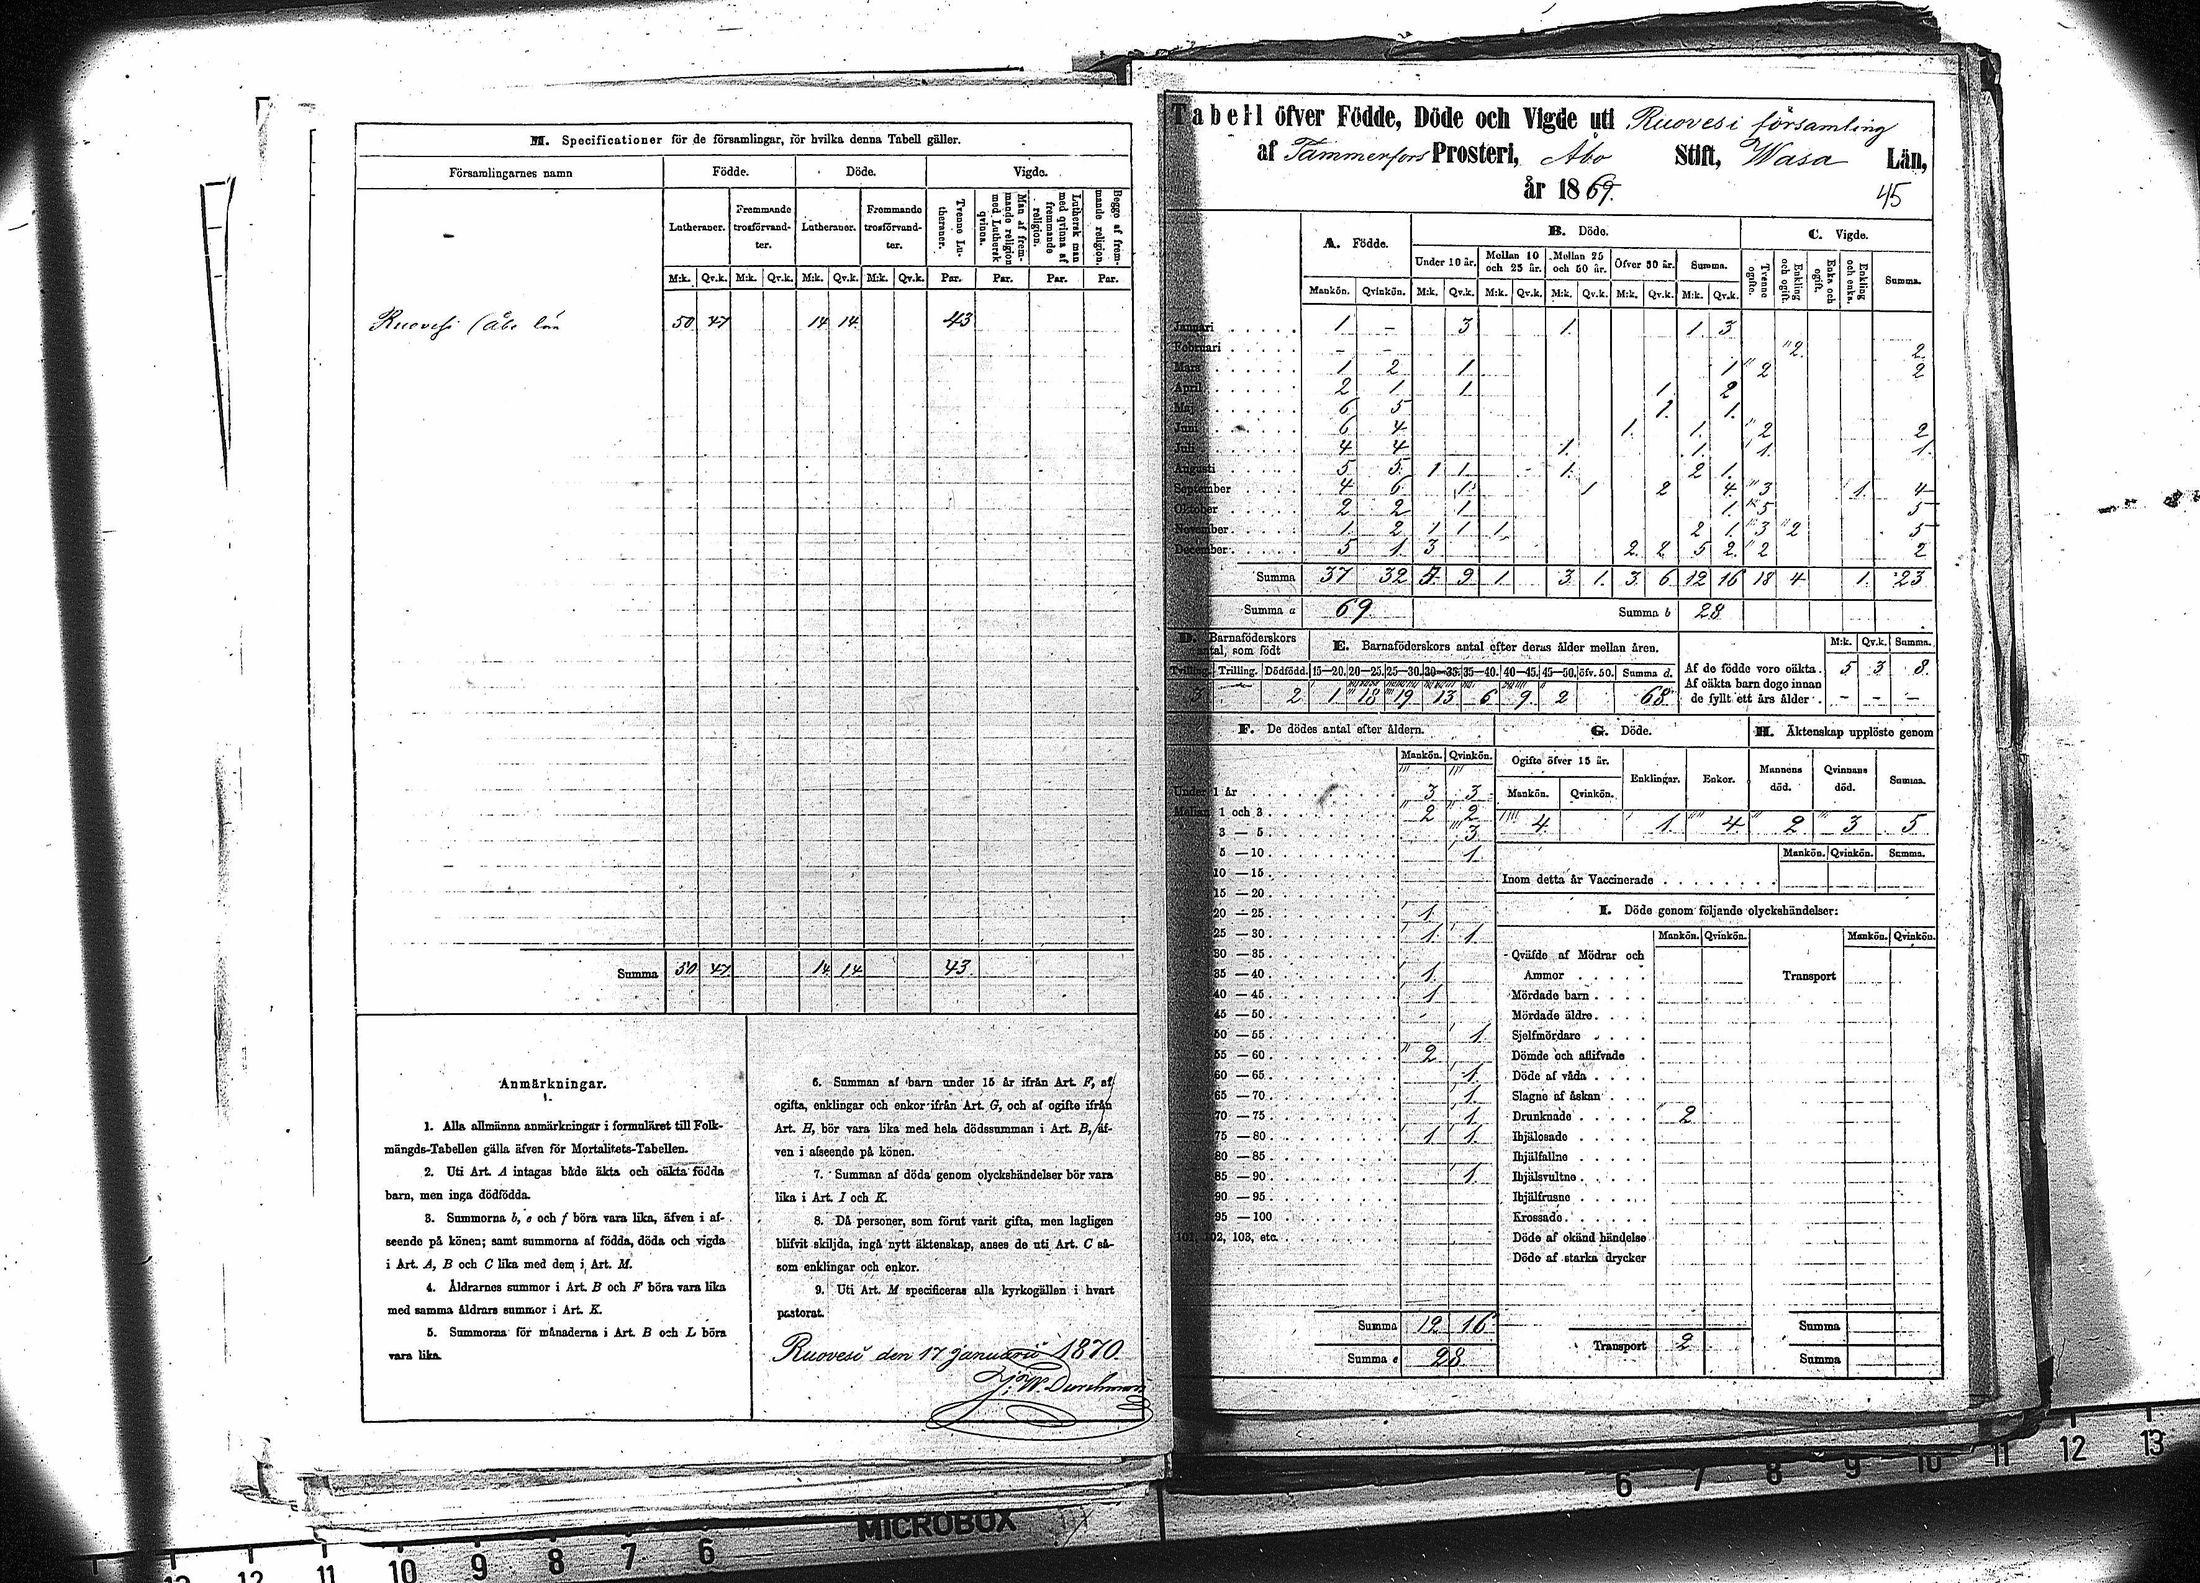 M. Specificationer för de församlingar, för hvilka denna Tabell gäller.
Församlingarnes namn Födde. Döde. Vigde.
Lutheraner. Fremmande trosförvandter. Lutheraner. Fremmande trosförvandter. Tvenne Lutheraner. Man af fremmande religion med Luthersk qvinna. Luthersk man med qvinna af fremmande religion. Begge af fremmande religion.
M:k. Qv.k. M:k. Qv.k. M:k. Qv.k. M:k. Qv.k. Par. Par. Par. Par.
Ruovesi (Åbo län 50 47 14 14 43
Summa 50 47 14 14 43
Anmärkningar.
1. Alla allmänna anmärkningar i formuläret till Folk-
mängds-Tabellen gälla äfven för Mortalitets-Tabellen.
2. Uti Art. A intagas både äkta och oäkta födda
barn, men inga dödfödda.
3. Summorna b, e och f böra vara lika, äfven i af-
seende på könen; samt summorna af födda, döda och vigda
i Art. A, B och C lika med dem i Art. M.
4. Åldrarnes summor i Art. B och F böra vara lika
med samma åldrars summor i Art. K.
5. Summorna för månaderna i Art. B och L böra
vara lika.
6. Summan af barn under 15 år ifrån Art. F, af
ogifta, enklingar och enkor ifrån Art. G, och af ogifte ifrån
Art. H, bör vara lika med hela dödssumman i Art. B, äf-
ven i afseende på könen.
7. Summan af döda genom olyckshändelser bör vara
lika i Art. I och K.
8. Då personer, som förut varit gifta, men lagligen
blifvit skiljda, ingå nytt äktenskap, anses de uti Art. C så-
som enklingar och enkor.
9. Uti Art. M specificeras alla kyrkogällen i hvart
pastorat.
Ruovesi den 17 Januarii 1870
Tabell öfver Födde, Döde och Vigde uti Ruovesi församling
af Tammerfors Prosteri, Åbo Stift, Wasa Län,
år 1869.
45
A. Födde. B. Döde. C. Vigde.
Under 10 år. Mellan 10 och 25 år. Mellan 25 och 50 år. Öfver 50 år. Summa. Tvenne ogifte. Enkling och ogift. Enka och ogift. Enkling och enka. Summa.
Mankön. Qvinkön. M:k. Qv.k. M:k. Qv.k. M:k. Qv.k. M:k. Qv.k. M:k. Qv.k.
Januari 1 - 3 1. 1. 3
Februari - - 2. 2.
Mars 1 2 1 1 2 2
April 2 1 1. 1. 2
Maj 6 5 1. 1.
Juni 6 4 1. 1. 2 2
Juli 4 4 1. 1. 1. 1.
Augusti 5 5. 1 1. 1. 2 1.
September 4 6 1. 1 2 4. 3 1. 4
Oktober 2 2 1 1 5 5
November 1. 2 1 1 1. 2 1. 3 2 5
December 5 1. 3 2 2 5 2. 2 2
Summa 37 32 7. 9 1. 3. 1. 3. 6 12 16 18 4 1. 23
Summa a 69. Summa b 28
D. Barnaföderskors antal, som född
E. Barnaföderskors antal efter deras ålder mellan åren.
M:k. Qv.k. Summa.
Tvilling. Trilling. Dödfödd. 15—20. 20—25. 25—30. 30—35. 35—40. 40—45. 45—50. öfv. 50. Summa d.
3 2 1 18 19 13 6 9. 2 68
Af de födde voro oäkta. 5 3 8.
Af oäkta barn dogo innan
de fyllt ett års ålder - - -
F. De dödes antal efter åldern.
Mankön. Qvinkön.
Under 1 år 3 3
Mellan 1 och 3 2 2
3 — 5 3
5 — 10 1
10 — 15
15 — 20
20 — 25 1.
25 — 30 1. 1
30 — 35
35 — 40 1.
40 — 45 1
45 — 50
50 — 55 1.
55 — 60 2
60 — 65 1.
65 — 70 1.
70 — 75 1
75 — 80 1 1.
80 — 85
85 — 90 1.
90 — 95
95 — 100
101, 102, 103, etc.
Summa 12 16
Summa e 28
G. Döde.
Ogifte öfver 15 år. Enklingar. Enkor.
Mankön. Qvinkön.
4. 1. 4
H. Äktenskap upplöste genom
Mannens död. Qvinnans död. Summa.
2 3 5
Mankön. Qvinkön. Summa.
Inom detta år Vaccinerade
I. Döde genom följande olyckshändelser:
Mankön. Qvinkön. Mankön. Qvinkön.
Qväfde af Mödrar och
Ammor Transport
Mördade barn
Mördade äldre
Sjelfmördare
Dömde och aflifvade
Döde af våda
Slagne af åskan
Drunknade 2
Ihjälosade
Ihjälfallne
Ihjälsvultne
Ihjälfrusne
Krossade
Döde af okänd händelse
Döde af starka drycker
Transport 2
Summa
Summa
MICROBOX
12 11 10 9 8 7 6
6 7 8 9 10 11 12 13